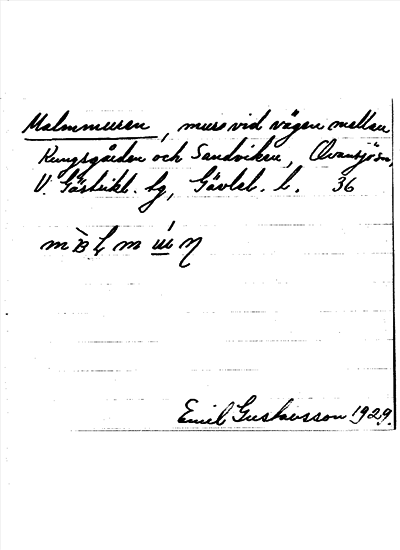 Malmmuren, mur vid vägen mellan
Kungsgården och Sandviken, Ovansjö sn,
V. Gästrikl. tg, Gävleb. l. 36
Emil Gustavsson 1929.